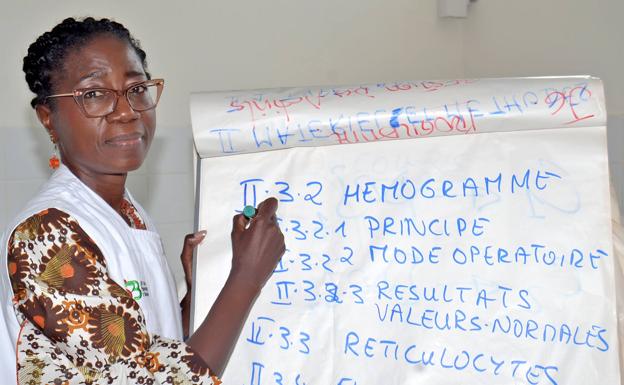 II.3.2 HEMOGRAMME
.3.2.1 PRINCIPE
II.3.2.2 MODE OPERATOIRE
II.3.2.3 RESULTATS
VALEURS-NORMALES
II.3.3 RETICULOCYTES
II.3.4